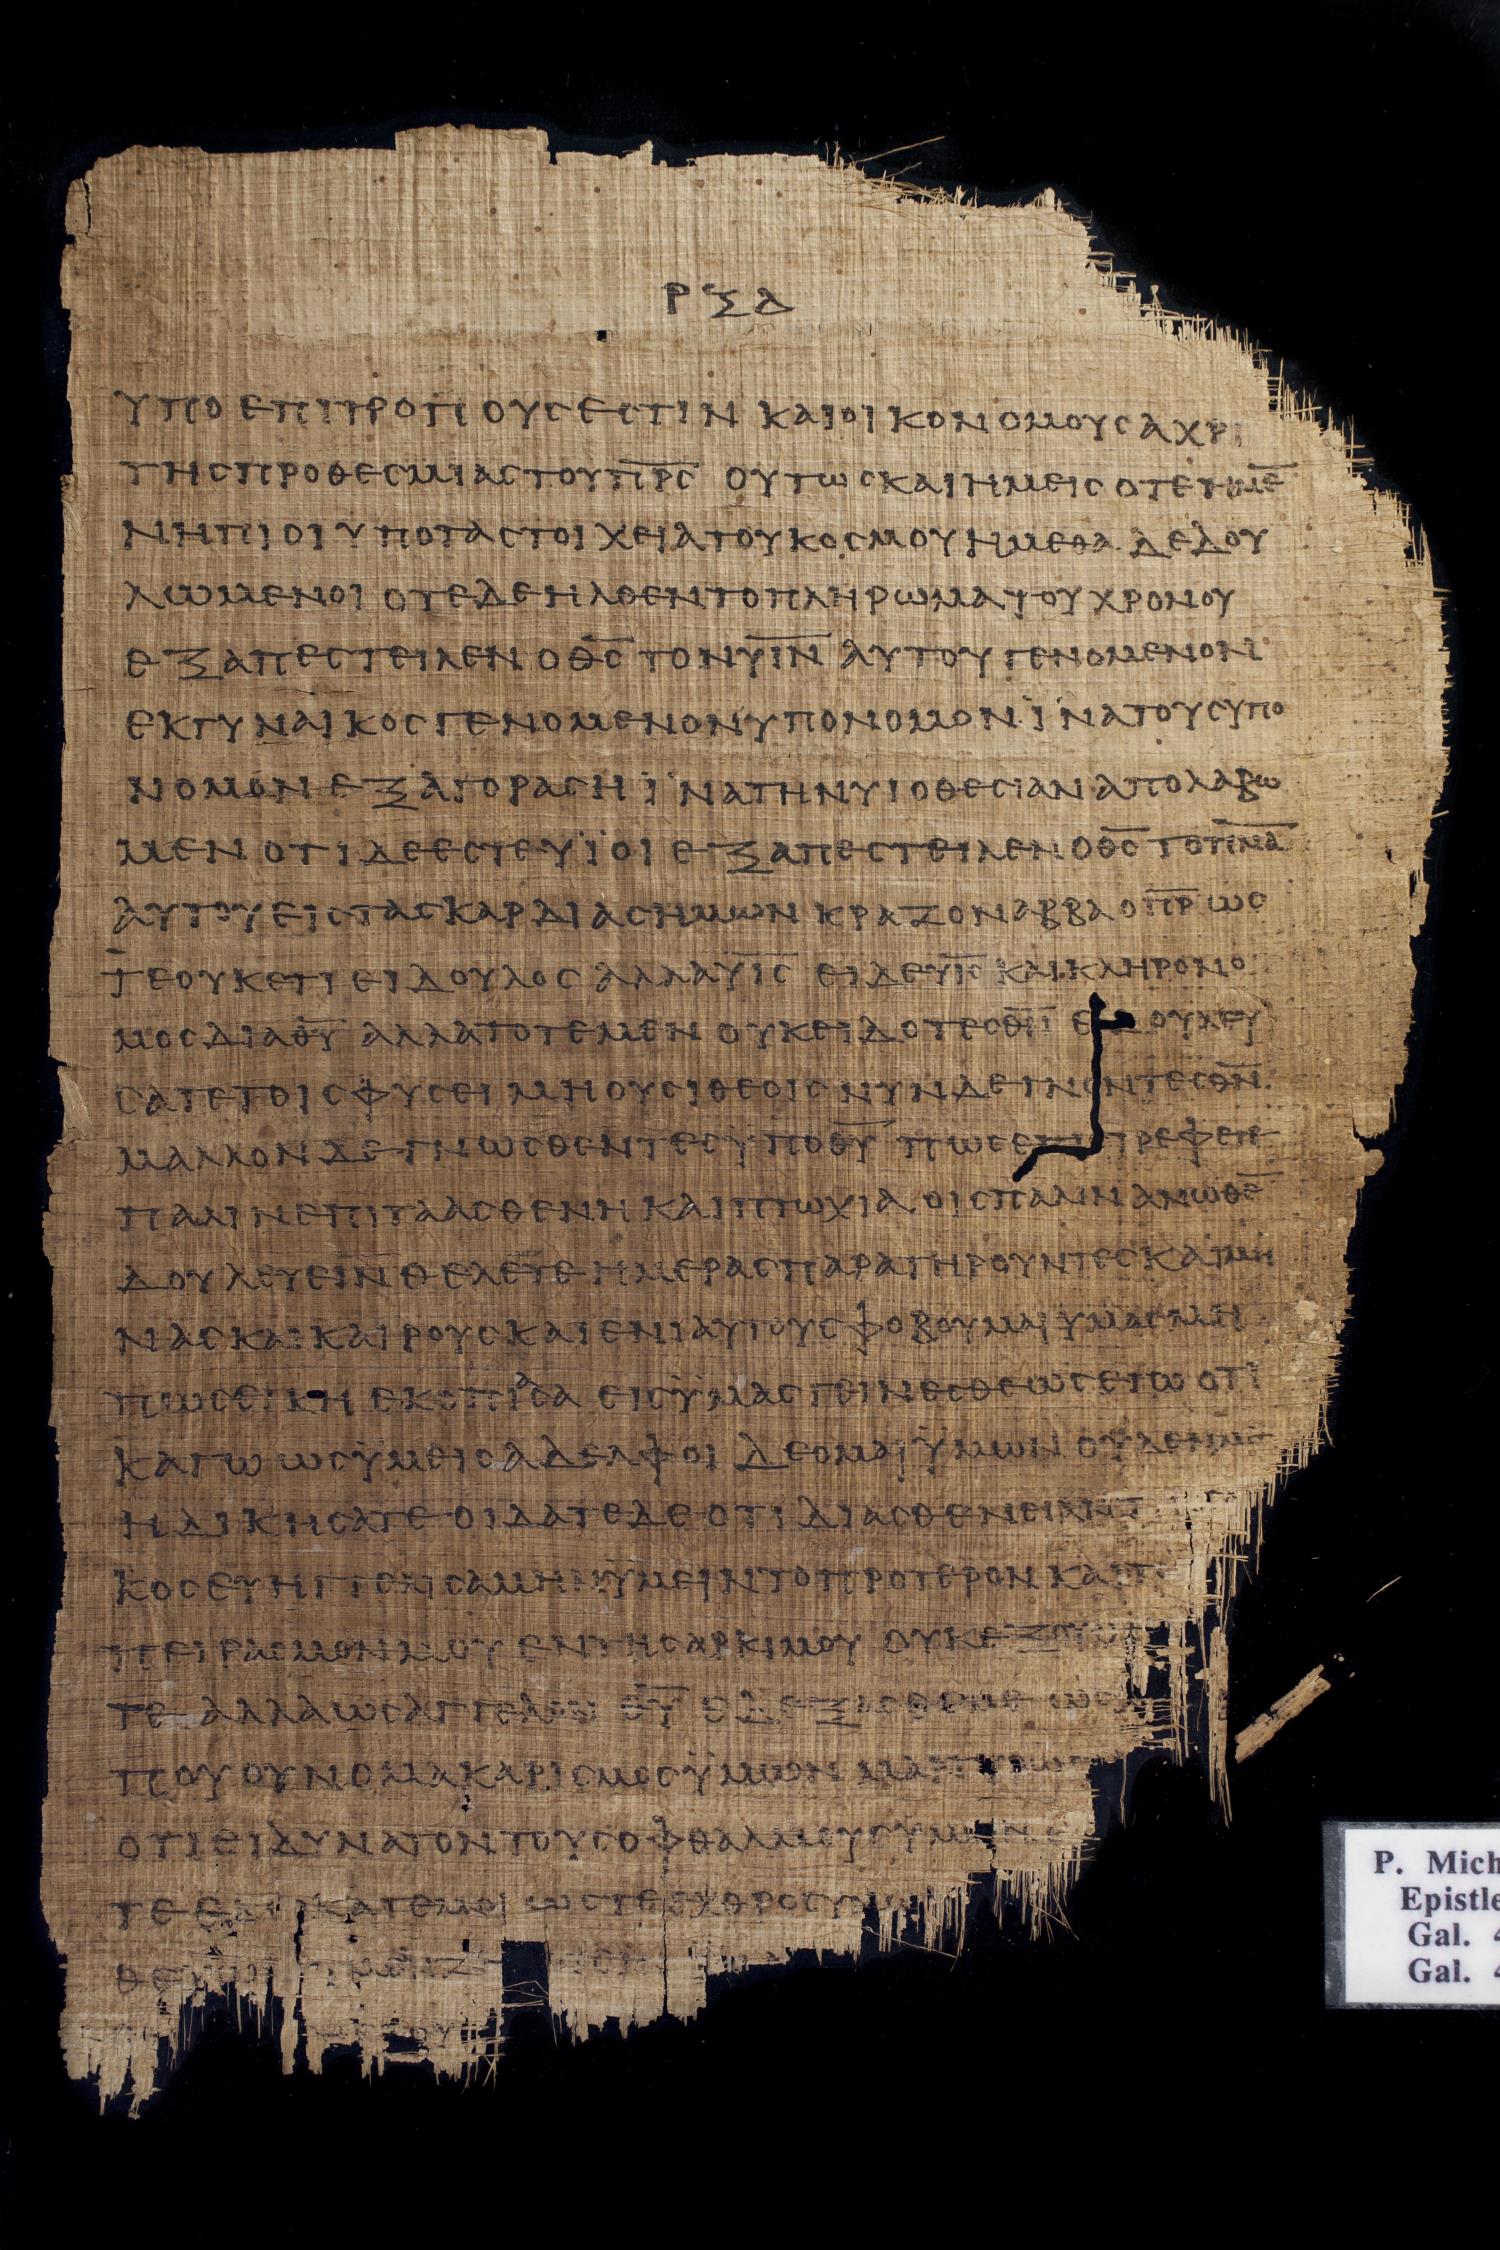 ΡΞΔ
ΥΠΟ ΕΠΙΤΡΟΠΟΥΣ ΕΣΤΙΝ ΚΑΙ ΟΙΚΟΝΟΜΟΥΣ ΑΧΡΙ
ΤΗΣ ΠΡΟΘΕΣΜΙΑΣ ΤΟΥ Π̅Ρ̅Σ̅ ΟΥΤΩΣ ΚΑΙ ΗΜΕΙΣ ΟΤΕ ΗΜΕ̅
ΝΗΠΙΟΙ ΥΠΟ ΤΑ ΣΤΟΙΧΕΙΑ ΤΟΥ ΚΟΣΜΟΥ ΗΜΕΘΑ ΔΕΔΟΥ
ΛΩΜΕΝΟΙ ΟΤΕ ΔΕ ΗΛΘΕΝ ΤΟ ΠΛΗΡΩΜΑ ΤΟΥ ΧΡΟΝΟΥ
ΕΞΑΠΕΣΤΕΙΛΕΝ Ο Θ̅Σ̅ ΤΟΝ Υ̅Ι̅Ν̅ ΑΥΤΟΥ ΓΕΝΟΜΕΝΟΝ
ΕΚ ΓΥΝΑΙΚΟΣ ΓΕΝΟΜΕΝΟΝ ΥΠΟ ΝΟΜΟΝ ΪΝΑ ΤΟΥΣ ΥΠΟ
ΝΟΜΟΝ ΕΞΑΓΟΡΑΣΗ ΪΝΑ ΤΗΝ ΥΙΟΘΕΣΙΑΝ ΑΠΟΛΑΒΩ
ΜΕΝ ΟΤΙ ΔΕ ΕΣΤΕ ΥΪΟΙ ΕΞΑΠΕΣΤΕΙΛΕΝ Ο Θ̅Σ̅ ΤΟ Π̅Ν̅Α̅
ΑΥΤΟΥ ΕΙΣ ΤΑΣ ΚΑΡΔΙΑΣ ΗΜΩΝ ΚΡΑΖΟΝ ΑΒΒΑ Ο Π̅Ρ̅ ΩΣ
ΤΕ ΟΥΚΕΤΙ ΕΙ ΔΟΥΛΟΣ ΑΛΛΑ Υ̅Ι̅Σ̅ ΕΙ ΔΕ Υ̅Ι̅Σ̅ ΚΑΙ ΚΛΗΡΟΝΟ
ΜΟΣ ΔΙΑ Θ̅Υ̅ ΑΛΛΑ ΤΟΤΕ ΜΕΝ ΟΥΚ ΕΙΔΟΤΕΣ Θ̅Ν̅ ΕΔΟΥΛΕΥ
ΣΑΤΕ ΤΟΙΣ ΦΥΣΕΙ ΜΗ ΟΥΣΙ ΘΕΟΙΣ ΝΥΝ ΔΕ ΓΝΟΝΤΕΣ Θ̅Ν̅
ΜΑΛΛΟΝ ΔΕ ΓΝΩΣΘΕΝΤΕΣ ΫΠΟ Θ̅Υ̅ ΠΩΣ ΕΠΙΣΤΡΕΦΕΤΕ
ΠΑΛΙΝ ΕΠΙ ΤΑ ΑΣΘΕΝΗ ΚΑΙ ΠΤΩΧΙΑ ΟΙΣ ΠΑΛΙΝ ΑΝΩΘΕ̅
ΔΟΥΛΕΥΕΙΝ ΘΕΛΕΤΕ ΗΜΕΡΑΣ ΠΑΡΑΤΗΡΟΥΝΤΕΣ ΚΑΙ ΜΗ
ΝΑΣ ΚΑΙ ΚΑΙΡΟΥΣ ΚΑΙ ΕΝΙΑΥΤΟΥΣ ΦΟΒΟΥΜΑΙ ΥΜΑΣ ΜΗ
ΠΩΣ ΕΙΚΗ ΕΚΟΠΙΑΣΑ ΕΙΣ ΫΜΑΣ ΓΕΙΝΕΣΘΕ ΩΣ ΕΓΩ ΟΤΙ
ΚΑΓΩ ΩΣ ΫΜΕΙΣ ΑΔΕΛΦΟΙ ΔΕΟΜΑΙ ΫΜΩΝ ΟΥΔΕΝ ΜΕ
ΗΔΙΚΗΣΑΤΕ ΟΙΔΑΤΕ ΔΕ ΟΤΙ ΔΙ ΑΣΘΕΝΕΙΑΝ Τ
ΚΟΣ ΕΥΗΓΓΕΛΙΣΑΜΗΝ ΫΜΕΙΝ ΤΟ ΠΡΟΤΕΡΟΝ ΚΑΙ Τ
ΠΕΙΡΑΣΜΟΝ ΜΟΥ ΕΝ ΤΗ ΣΑΡΚΙ ΜΟΥ ΟΥΚ ΕΞΟΥ
ΤΕ ΑΛΛΑ ΩΣ ΑΓΓΕΛΟΝ Θ̅Υ̅ ΕΔΕΞΑΣΘΕ ΜΕ ΩΣ
ΠΟΥ ΟΥΝ Ο ΜΑΚΑΡΙΣΜΟΣ ΫΜΩΝ ΜΑΡΤΥΡΩ
ΟΤΙ ΕΙ ΔΥΝΑΤΟΝ ΤΟΥΣ ΟΦΘΑΛΜΟΥΣ ΥΜΩΝ
ΤΕ ΕΔΩΚΑΤΕ ΜΟΙ ΩΣΤΕ ΕΧΘΡΟΣ ΥΜΩ